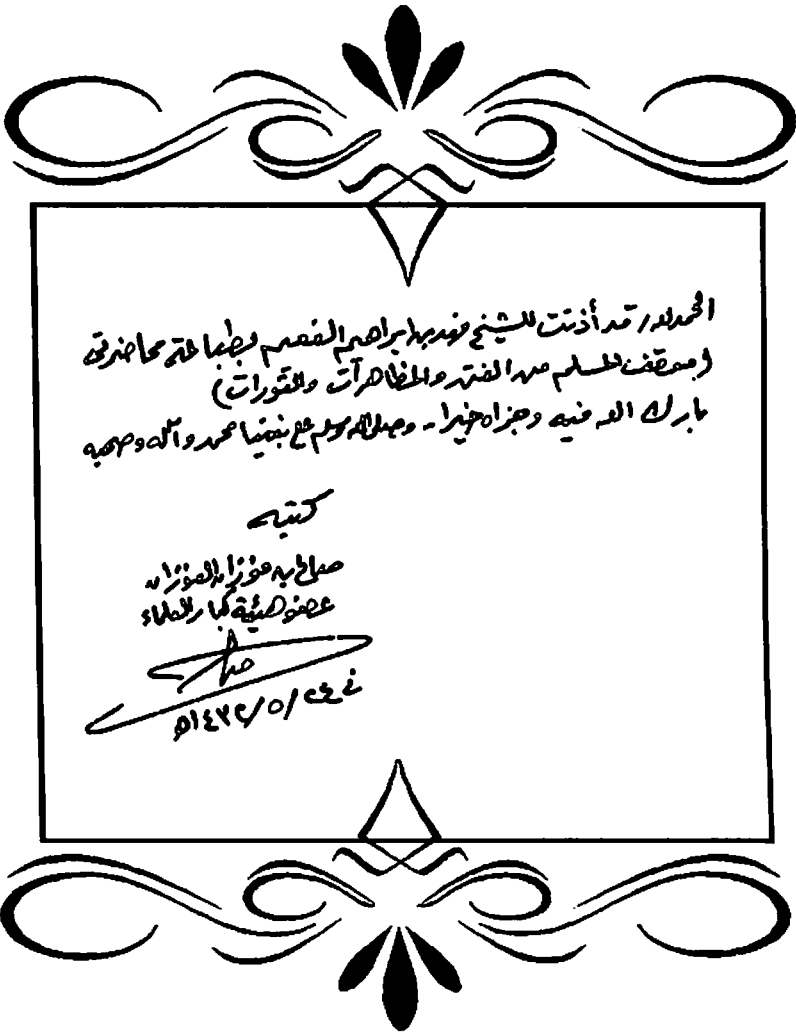 الحمد لله وقد أذنت للشيخ فهد بن إبراهيم الفعيم بطباعة محاضرتي
(موقف المسلم من الفتن والمظاهرات والثورات)
بارك الله فيه وجزاه خيرا. وصلى الله وسلم على نبينا محمد وآله وصحبه
كتبه
صالح بن فوزان الفوزان
عضو هيئة كبار العلماء
في ٢٤/٥/١٤٣٢هـ